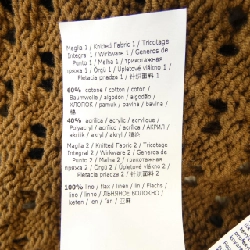 Maglia 1 / Knitted Fabric 1 / Tricotage
Integral 1 / Wirkware 1 / Generos de
Punto 1 / Malha 1 / трикотажная
1 / Örgü 1 / Úpletové vlákno 1 /
Pletacia priadze 1 / 针织面料 1
60% cotone / cotton / coton /
Baumwolle / algodon / algodão /
ХЛОПОК / pamuk / bavlna / bavlna /
棉
40% acrilica / acrylic / acrylique /
Polyacryl / acrilico / acrilico / АКРИЛ /
Maglia 2 / Knitted Fabric 2 / Tricotage
Integral 2 / Wirkware 2 / Generos de
Punto 2 / Malha 2 / трикотажная
2 / Örgü 2 / Úpletové vlákno 2 /
Pletacia priadze 2 / 针织面料 2
100% lino / flax / lin / Flachs /
lino / linho / ЛЬНЯНОЕ ВОЛОКНО /
keten / len / ľan / 亚麻